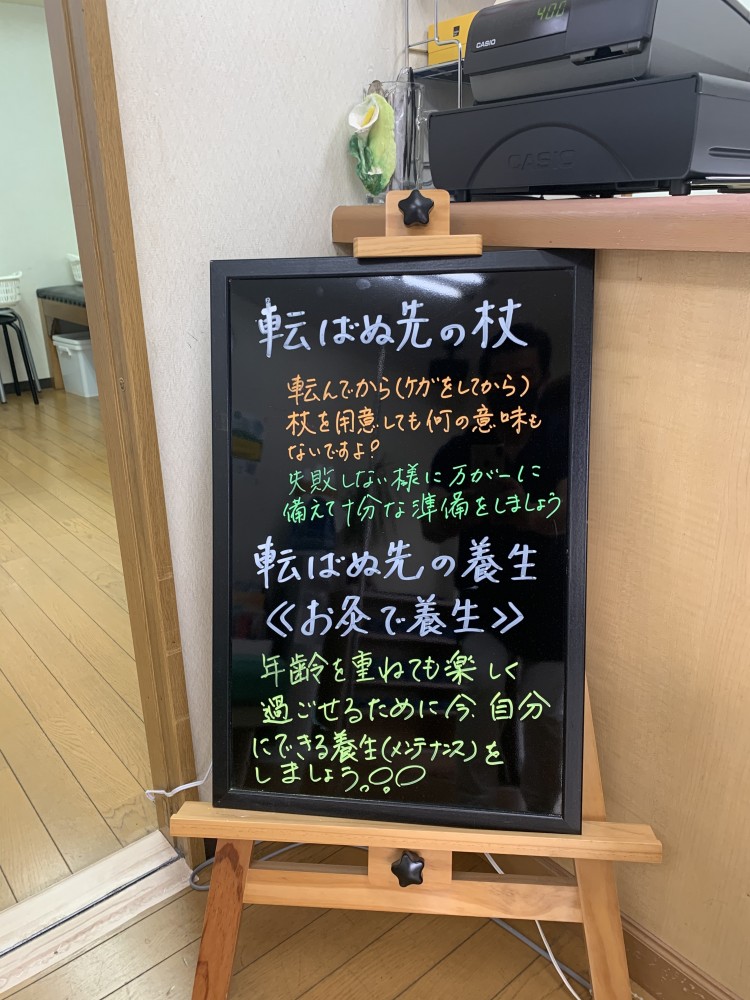 400
CASIO
CASIO
転ばぬ先の杖
転んでから(ケガをしてから)
杖を用意しても何の意味も
ないですよ?
失敗しない様に万が一に
備えて十分な準備をしましょう
転ばぬ先の養生
≪お灸で養生≫
年齢を重ねても楽しく
過ごせるために今、自分
にできる養生(メンテナンス)を
しましょう。○○